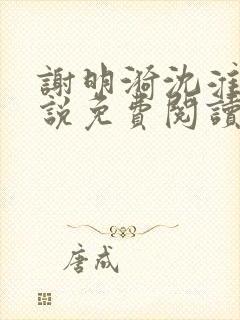 謝明漪沈淮
說免費閱讀
唐咸